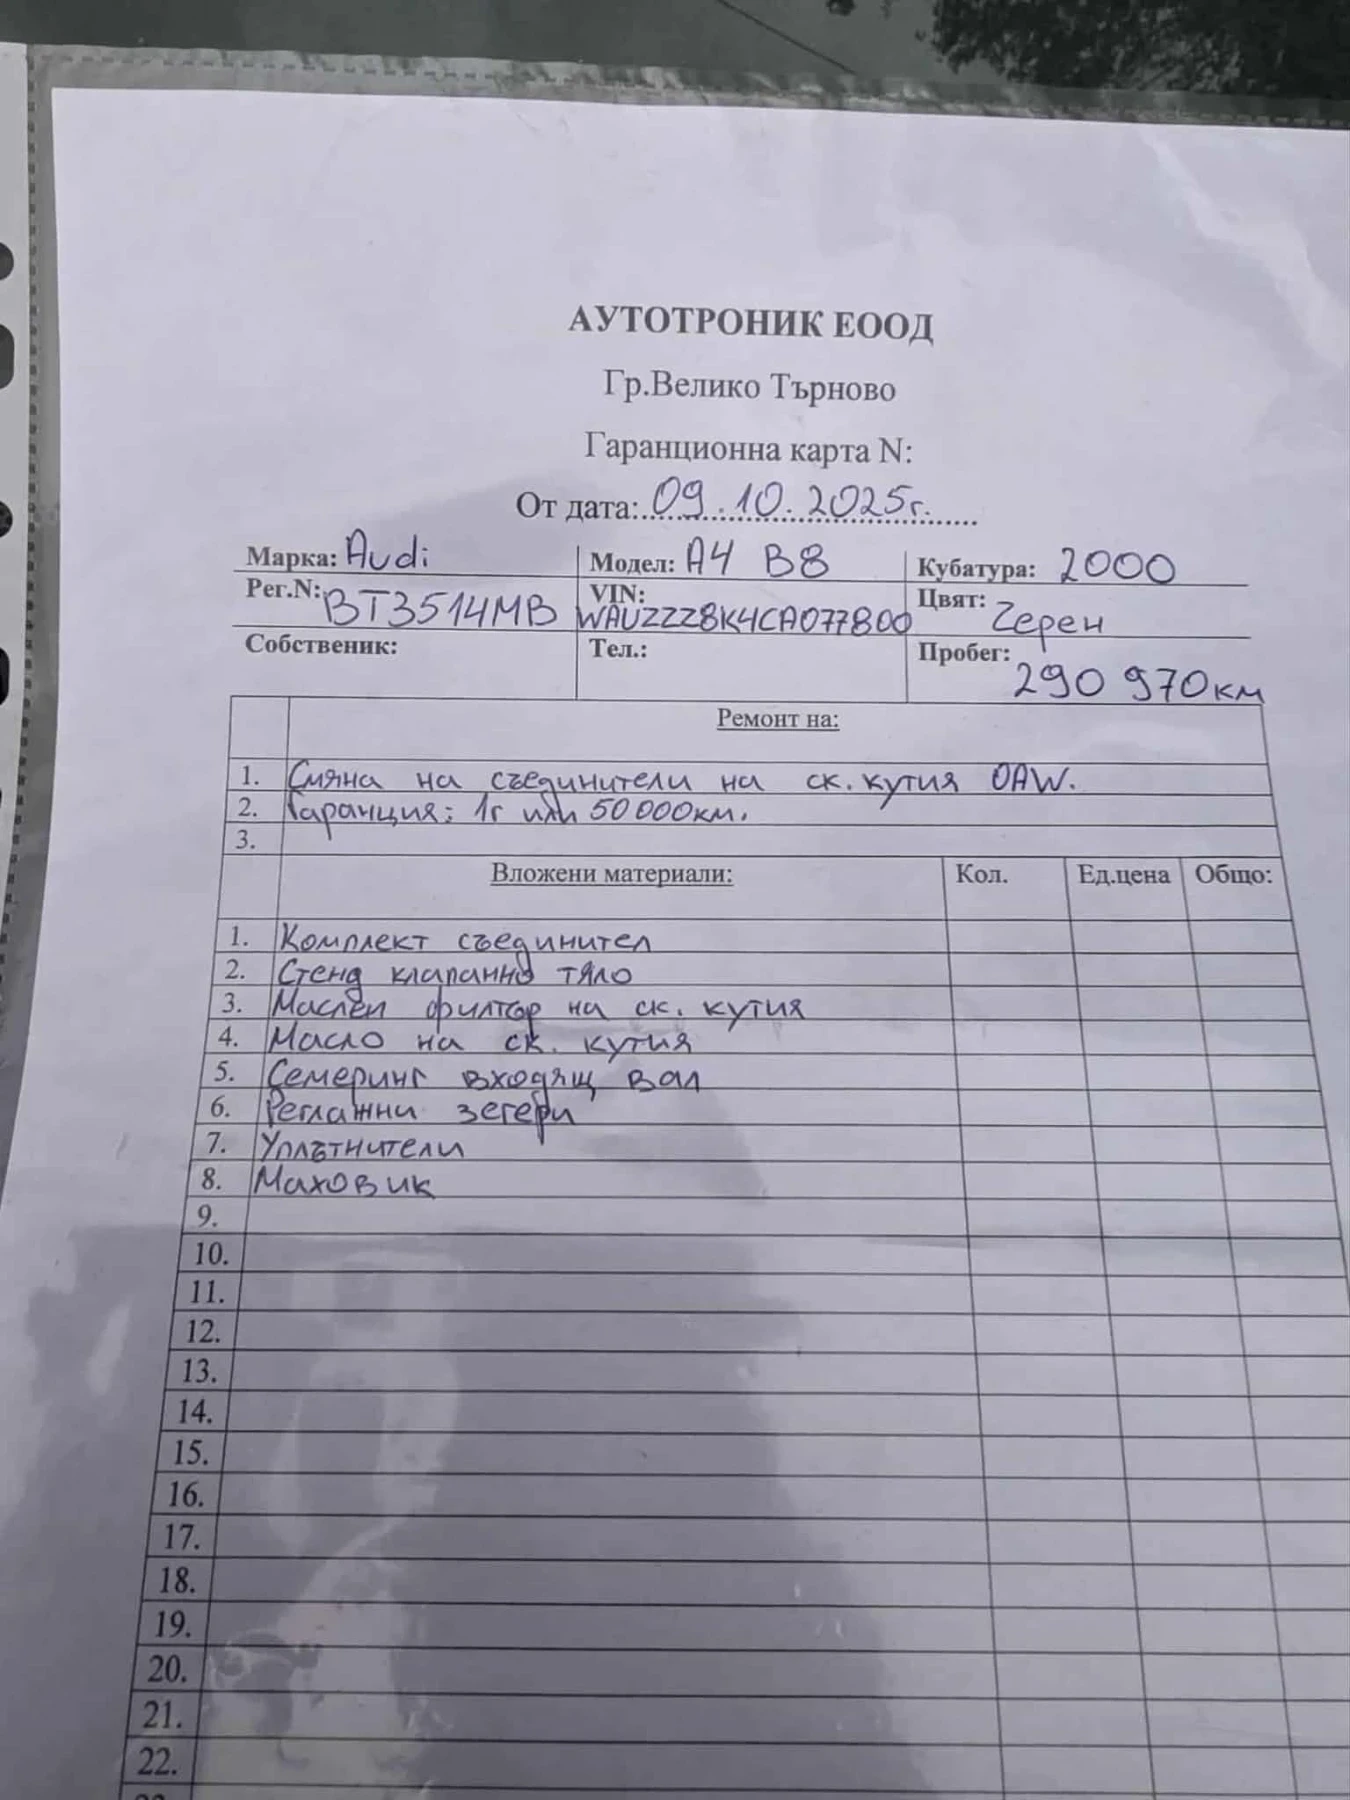 АУТОТРОНИК ЕООД
Гр.Велико Търново
Гаранционна карта N:
От дата: 09.10.2025г.
Марка: Audi Модел: A4 B8 Кубатура: 2000
Рег.N: BT3514MB VIN: WAUZZZ8K4CA077800 Цвят: Черен
Собственик: Тел.: Пробег: 290 970км
Ремонт на:
1. Смяна на съединители на ск. кутия OAW.
2. Гаранция: 1г или 50000км.
3.
Вложени материали: Кол. Ед.цена Общо:
1. Комплект съединител
2. Стенд клапанно тяло
3. Маслен филтър на ск. кутия
4. Масло на ск. кутия
5. Семеринг входящ вал
6. Реглажни зегери
7. Уплътнители
8. Маховик
9.
10.
11.
12.
13.
14.
15.
16.
17.
18.
19.
20.
21.
22.